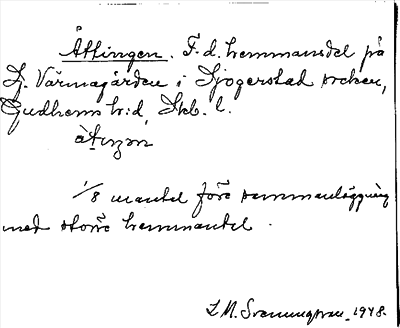 Åttingen. F.d. hemmansdel på
Lj. Värmagården i Sjogerstad socken,
Gudhems h:d, Skb. l.
åtıŋən
1/8 mantel före sammanläggning
med större hemmandel.
L M. Svenungsson. 1948.